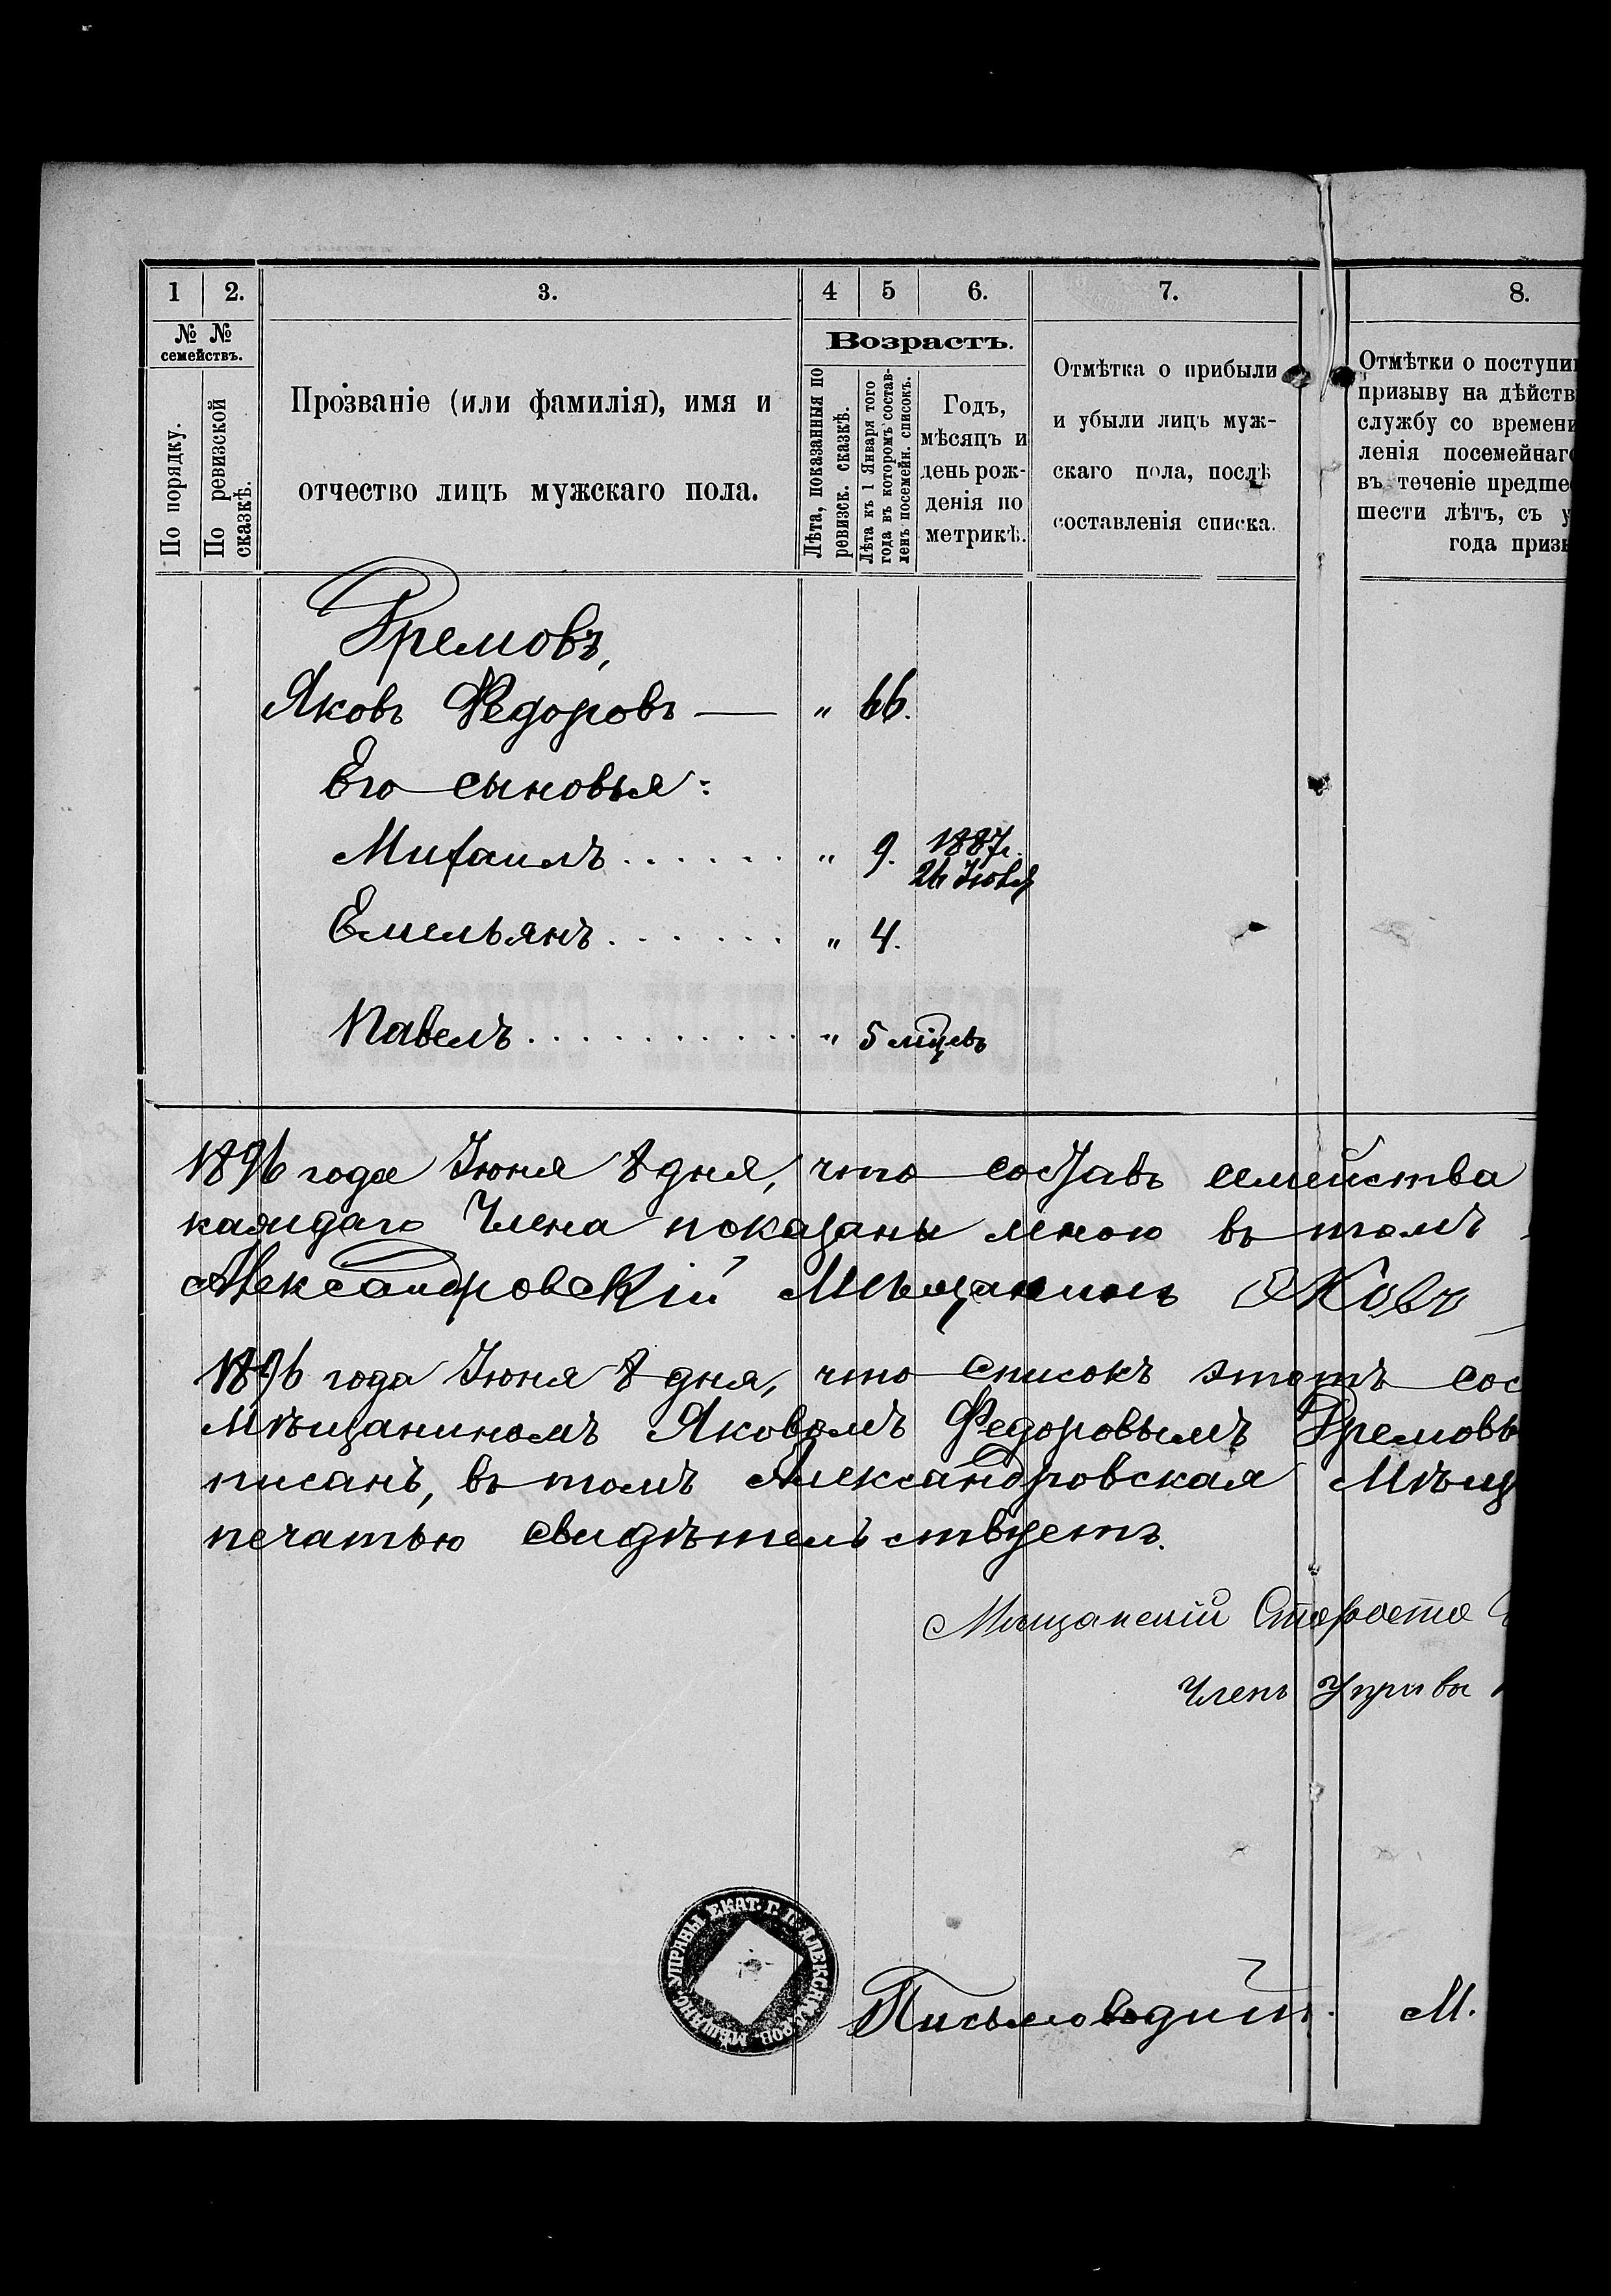 1 2. 3. 4 5 6. 7. 8.
№ №
семействъ.
По порядку.
По ревизской
сказкѣ.
Прозваніе (или фамилія), имя и
отчество лицъ мужскаго пола.
Возрастъ.
Лѣта, показанныя по
ревизск. сказкѣ.
Лѣта къ 1 Января того
года въ которомъ состав-
ленъ посемейн. списокъ.
Годъ,
мѣсяцъ и
день рож-
денія по
метрикѣ.
Отмѣтка о прибыли
и убыли лицъ муж-
скаго пола, послѣ
составленія списка.
Отмѣтки о поступи
призыву на дѣйств
службу со времени
ленія посемейнаго
въ теченіе предше
шести лѣтъ, съ у
года призы
Гремовъ,
Яковъ Федоровъ — „ 66.
Его сыновья:
Михаилъ . . . . . . „ 9. 1887г.
26
Емельянъ . . . . . . . „ 4.
Павелъ . . . . . . . . . . . „ 5 мѣцевъ
1896 года Іюня 8 дня, что составъ семейства
каждаго Члена показаны мною въ томъ
Александровскій Мѣщанинъ Яковъ
1896 года Іюня 8 дня, что списокъ этотъ сос
Мѣщаниномъ Яковомъ Федоровымъ Гремовы
писанъ, въ томъ Александровская Мѣщ
печатью свидѣтельствуетъ.
Мѣщанскій Староста
Членъ Управы
УПРАВЫ ЕКАТ. Г. Г. АЛЕКСАНДРОВ. МѢЩАНС.
Письмоводит. М.